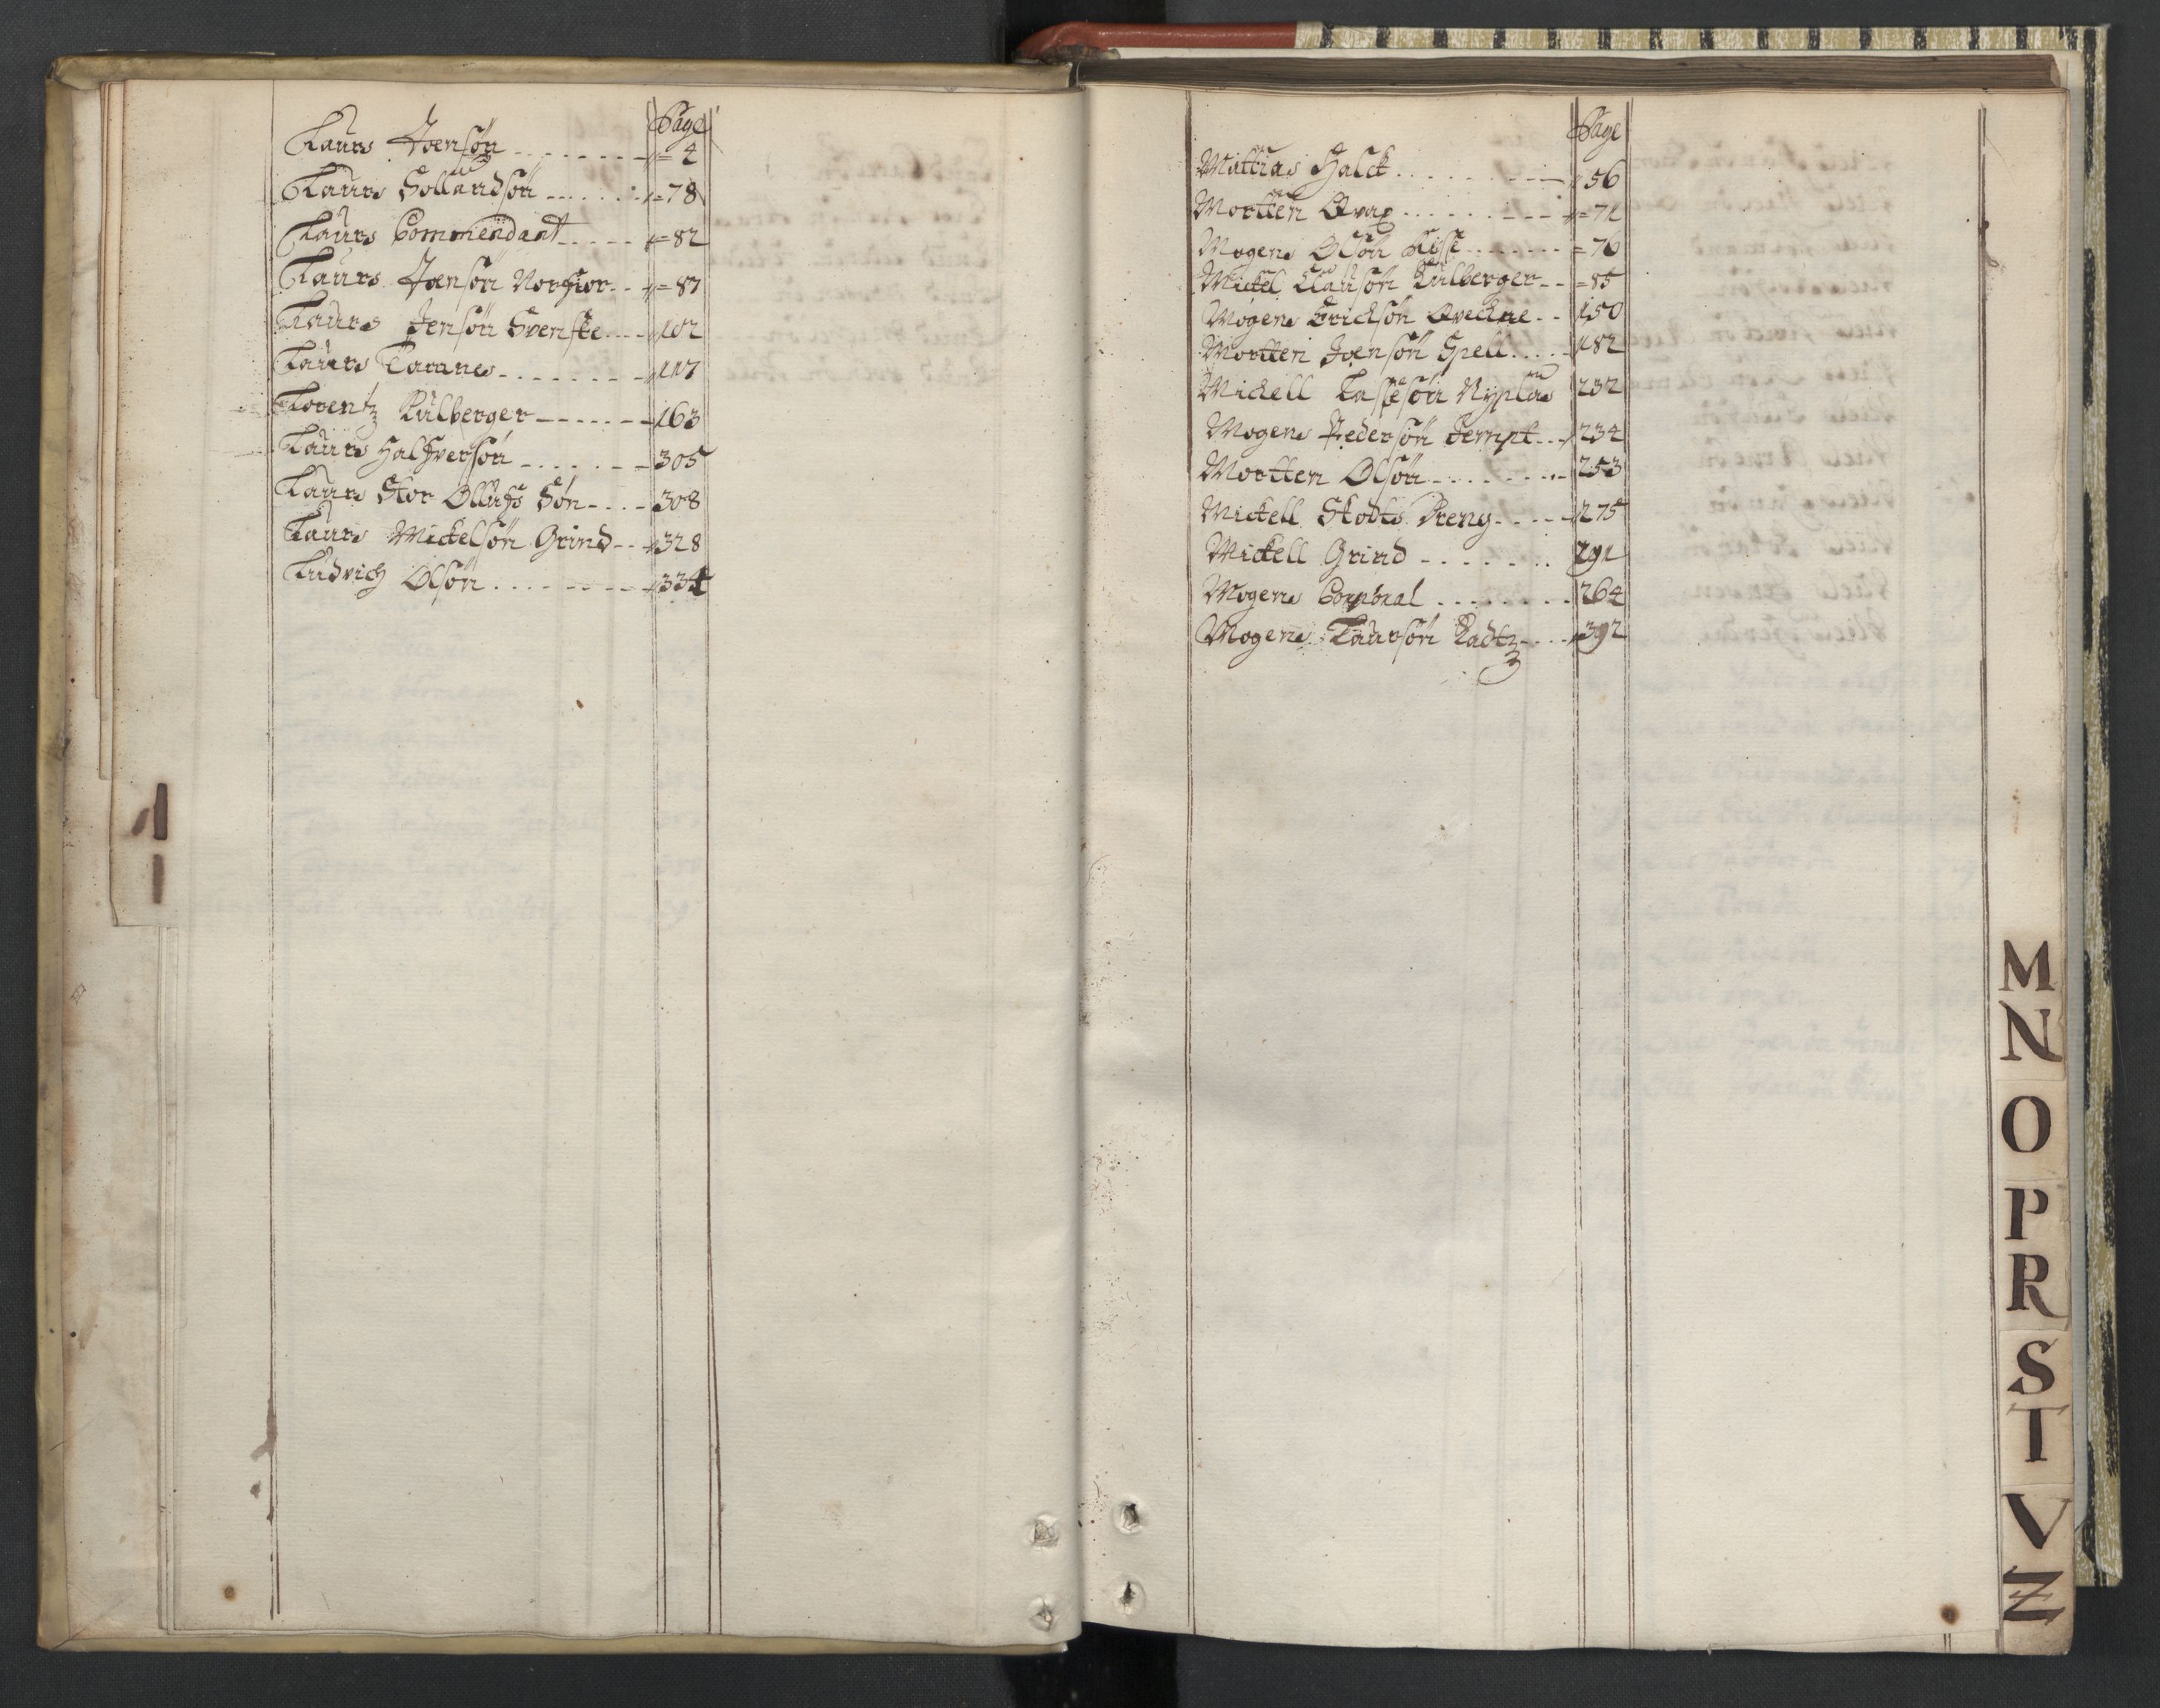 Page
Laurs Joensøn 4
Laurs Hollandsøn 78
Laurs Commendant 82
Laurs Joensøn Norhior 87
Laurs Jensøn Svenske 102
Laurs Taranes 117
Lorentz Kulberger 163
Laurs Halfversøn 305
Laurs Stor Olluffs Søn 308
Laurs Mickelsøn Grind 328
Ludvich Olsøn 334
Page
Mattias Halck 56
Mortten Qvap 71
Mogens Olsøn 76
Mickel Clausøn Kulberger 85
Mogens Erichsøn Qvechne 150
Mortten Joensøn Spell 182
Mickell Lassesøn Nyplas 232
Mogens Pedersøn Jempt 234
Mortten Olsøn 253
Mickell Skodts Dreng 275
Mickell Grind 291
Mogens Corporal 264
Mogens Laursøn Radtz 392
M
N
O
P
R
S
T
V
Z